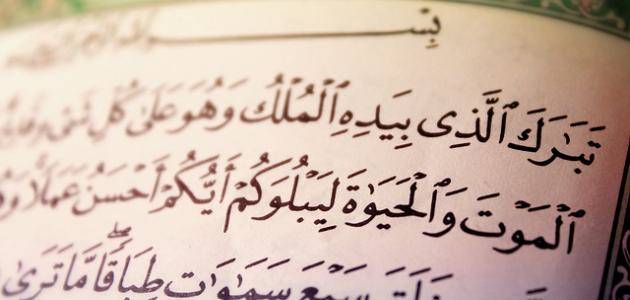 بِسْـــــــــمِ
تَبَٰرَكَ ٱلَّذِى بِيَدِهِ ٱلْمُلْكُ وَهُوَ عَلَىٰ كُلِّ شَىْءٍ
ٱلْمَوْتَ وَٱلْحَيَوٰةَ لِيَبْلُوَكُمْ أَيُّكُمْ أَحْسَنُ عَمَلًا
سَبْعَ سَمَٰوَٰتٍ طِبَاقًا مَّا تَرَىٰ